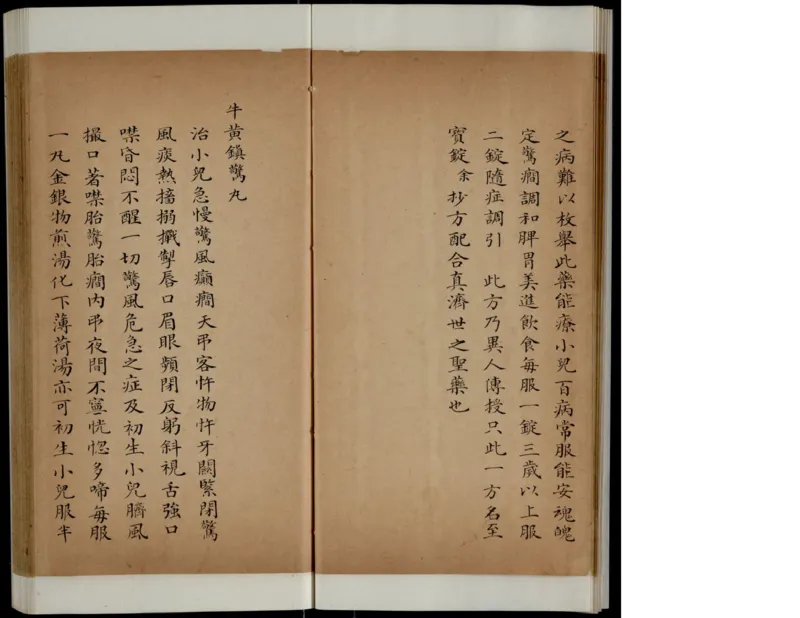 之病難以枚舉此藥能療小兒百病常服能安魂魄
定驚癇調和脾胃美進飲食每服一錠三歲以上服
二錠隨症調引　此方乃異人傳授只此一方名至
寳錠余抄方配合真濟世之聖藥也
牛黃鎮驚丸
治小兒急慢驚風癲癇天弔客忤物忤牙關緊閉驚
風痰熱搐搦瘈掣唇口眉眼頻閉反躬斜視舌強口
噤昏悶不醒一切驚風危急之症及初生小兒臍風
撮口著噤胎驚胎癇內弔夜間不寧恍惚多啼每服
一丸金銀物煎湯化下薄荷湯亦可初生小兒服半